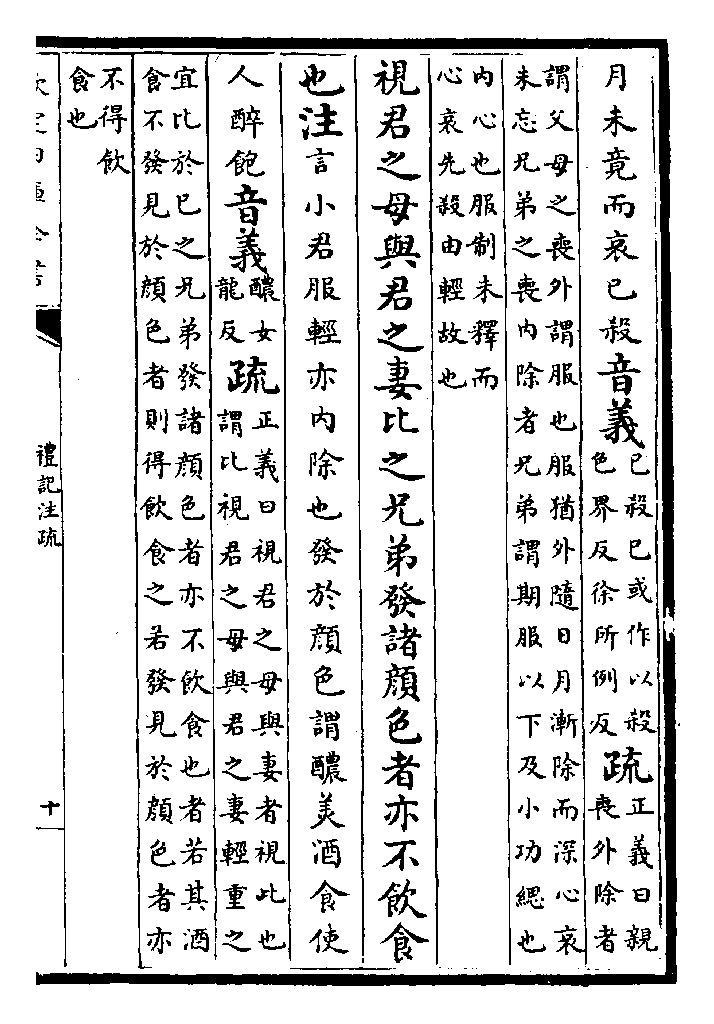 月未竟而哀已殺音義已殺已或作以殺色界反徐所例反疏正義曰親喪外除者
謂父母之喪外謂服也服猶外隨日月漸除而深心哀
未忘兄弟之喪内除者兄弟謂期服以下及小功緦也
内心也服制未釋而
心哀先殺由輕故也
視君之母與君之妻比之兄弟發諸顔色者亦不飲食
也注言小君服輕亦内除也發於顔色謂醲美酒食使
人醉飽音義醲女龍反疏正義曰視君之母與妻者視比也謂比視君之母與君之妻輕重之
宜比於已之兄弟發諸顔色者亦不飲食也者若其酒
食不發見於顔色者則得飲食之若發見於顔色者亦
不得飲
食也
欽定四庫全書
禮記注疏
十